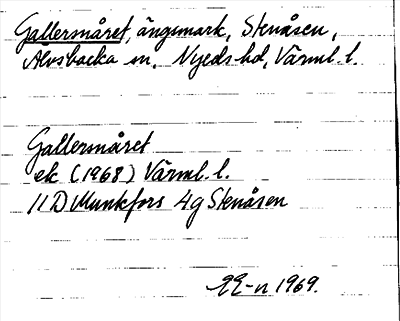 Gallersmåret, ängsmark, Stenåsen,
Älvsbacka sn, Nyeds hd, Värml. l.
Gallersmåret
ek (1968) Värml. l.
11D Munkfors 4g Stenåsen
EE-n 1969.